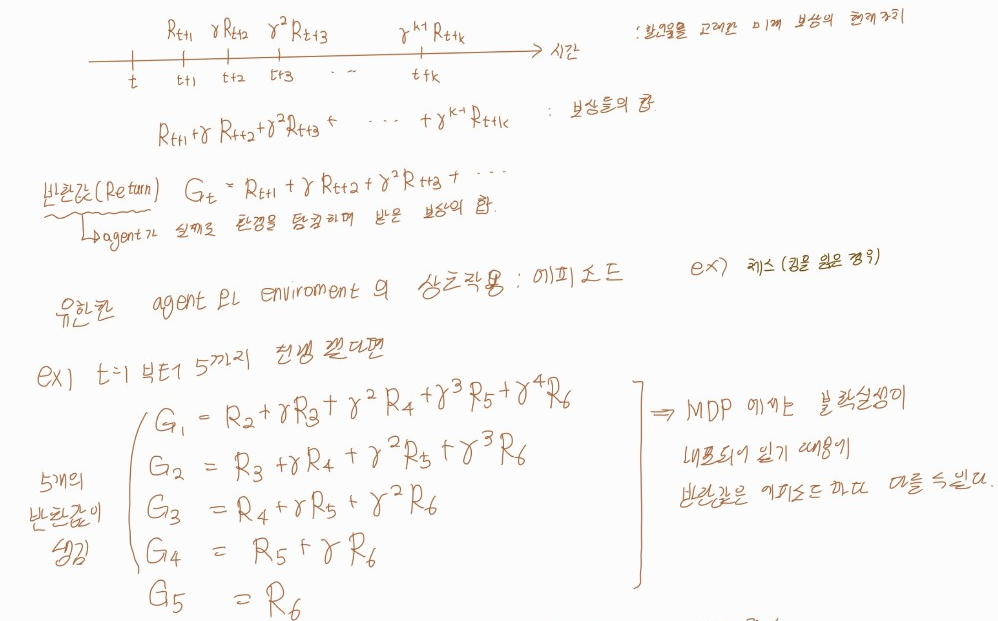 R_{t+1} γR_{t+2} γ²R_{t+3} γ^{k-1}R_{t+k}
: 할인율을 고려한 미래 보상의 현재가치
시간
t t+1 t+2 t+3 ... t+k
R_{t+1}+γR_{t+2}+γ²R_{t+3}+ ... +γ^{k-1}R_{t+k} : 보상들의 합.
반환값(Return) G_t = R_{t+1} + γR_{t+2} + γ²R_{t+3} + ...
↳agent가 실제로 환경을 탐험하며 받은 보상의 합.
유한한 agent 와 enviroment 의 상호작용 : 에피소드 ex) 체스 (킹을 잃은 경우)
ex) t=1 부터 5까지 진행 됐다면
G₁ = R₂+γR₃+γ²R₄+γ³R₅+γ⁴R₆
G₂ = R₃+γR₄+γ²R₅+γ³R₆
G₃ = R₄+γR₅+γ²R₆
G₄ = R₅+γR₆
G₅ = R₆
5개의
반환값이
생김
⇒ MDP 에서는 불확실성이
내포되어 있기 때문에
반환값은 에피소드 마다 다를 수 있다.